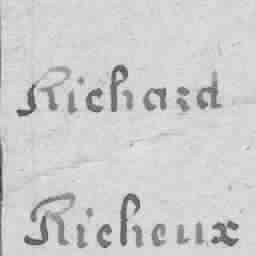 Richard
Richeux